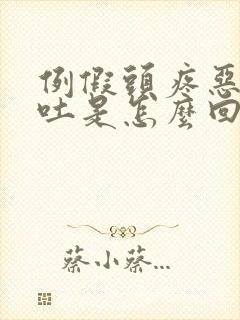 例假頭疼惡
吐是怎麼回
蔡小蔡...